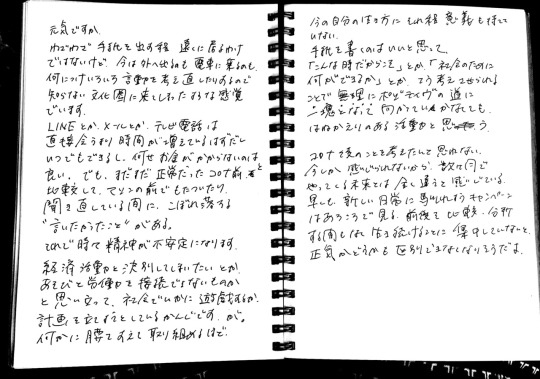 元気ですか。
わざわざ手紙を出す程 遠くに居るわけ
ではないけど、今は外へ出るのも電車に乗るのも、
何につけいろいろ言動を考え直したりするので
知らない文化圏に来てしまったような感覚
でいます。
LINEとか、メールとか、テレビ電話は
直接会うより時間が増えているはずだし
いつでもできるし、何せお金がかからないのは
良い。でも、まだまだ正常だったコロナ前と
比較して、マシンの前でもたついたり、
聞き直している間に、こぼれ落ちる
"言いたかったこと"がある。
それで時々精神が不安定になります。
経済活動と決別してしまいたいとか、
あそびと労働を 接続できないものか
と思い立って、社会でいかに遊戯するか、
計画を立てようとしているかんじです。が。
何かに腰をすえて取り組めるほど、
今の自分の在り方にそれ程 意義も持てて
いない。
手紙を書くのはいいと思って。
「こんな時だからこそ」とか「社会のために
何ができるか」とか、そう考えさせられる
ことで無理にポジティヴの道に
一塊となって向かっていかなくても、
はねかえりのある活動と思う。
コロナ後のことを考えたいと思わない。
今しか感じられないから。数ヶ月で
やってくる未来では全く違うと感じている。
早くも、新しい日常に馴れましょうキャンペーン
はあちこちで見る。前後を比較、分析
する間もなく 生き続けることに集中していないと、
正気かどうかも区別できなくなりそうだよ。